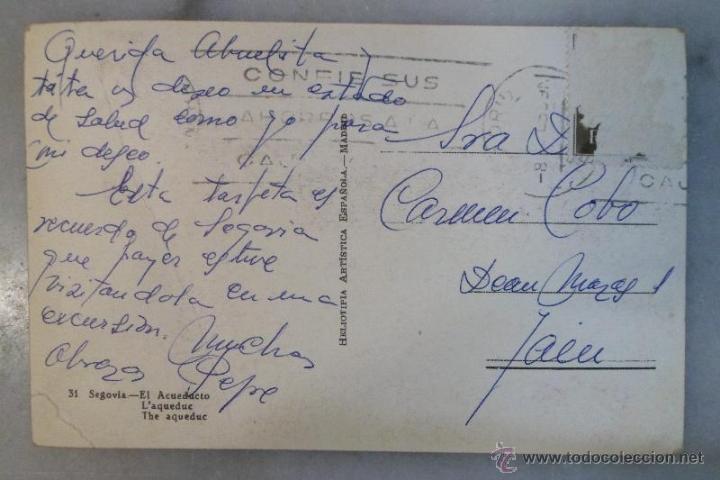 Querida Abuelita y
tata os deseo un estado
de salud como yo para
mi deseo.
Esta tarjeta es
recuerdo de Segovia
que payer estuve
visitandola en una
excursión. Muchos
Abrazos Pepe
31 Segovia.—El Acueducto
L'aqueduc
The aqueduc
HELIOTIPIA ARTÍSTICA ESPAÑOLA.—MADRID
CONFIE SUS
AHORROS A LA
CA
Sra D
Carmen Cobo
Dean Mazas 1
Jaén
CAJ
todocoleccion
www.todocoleccion.net